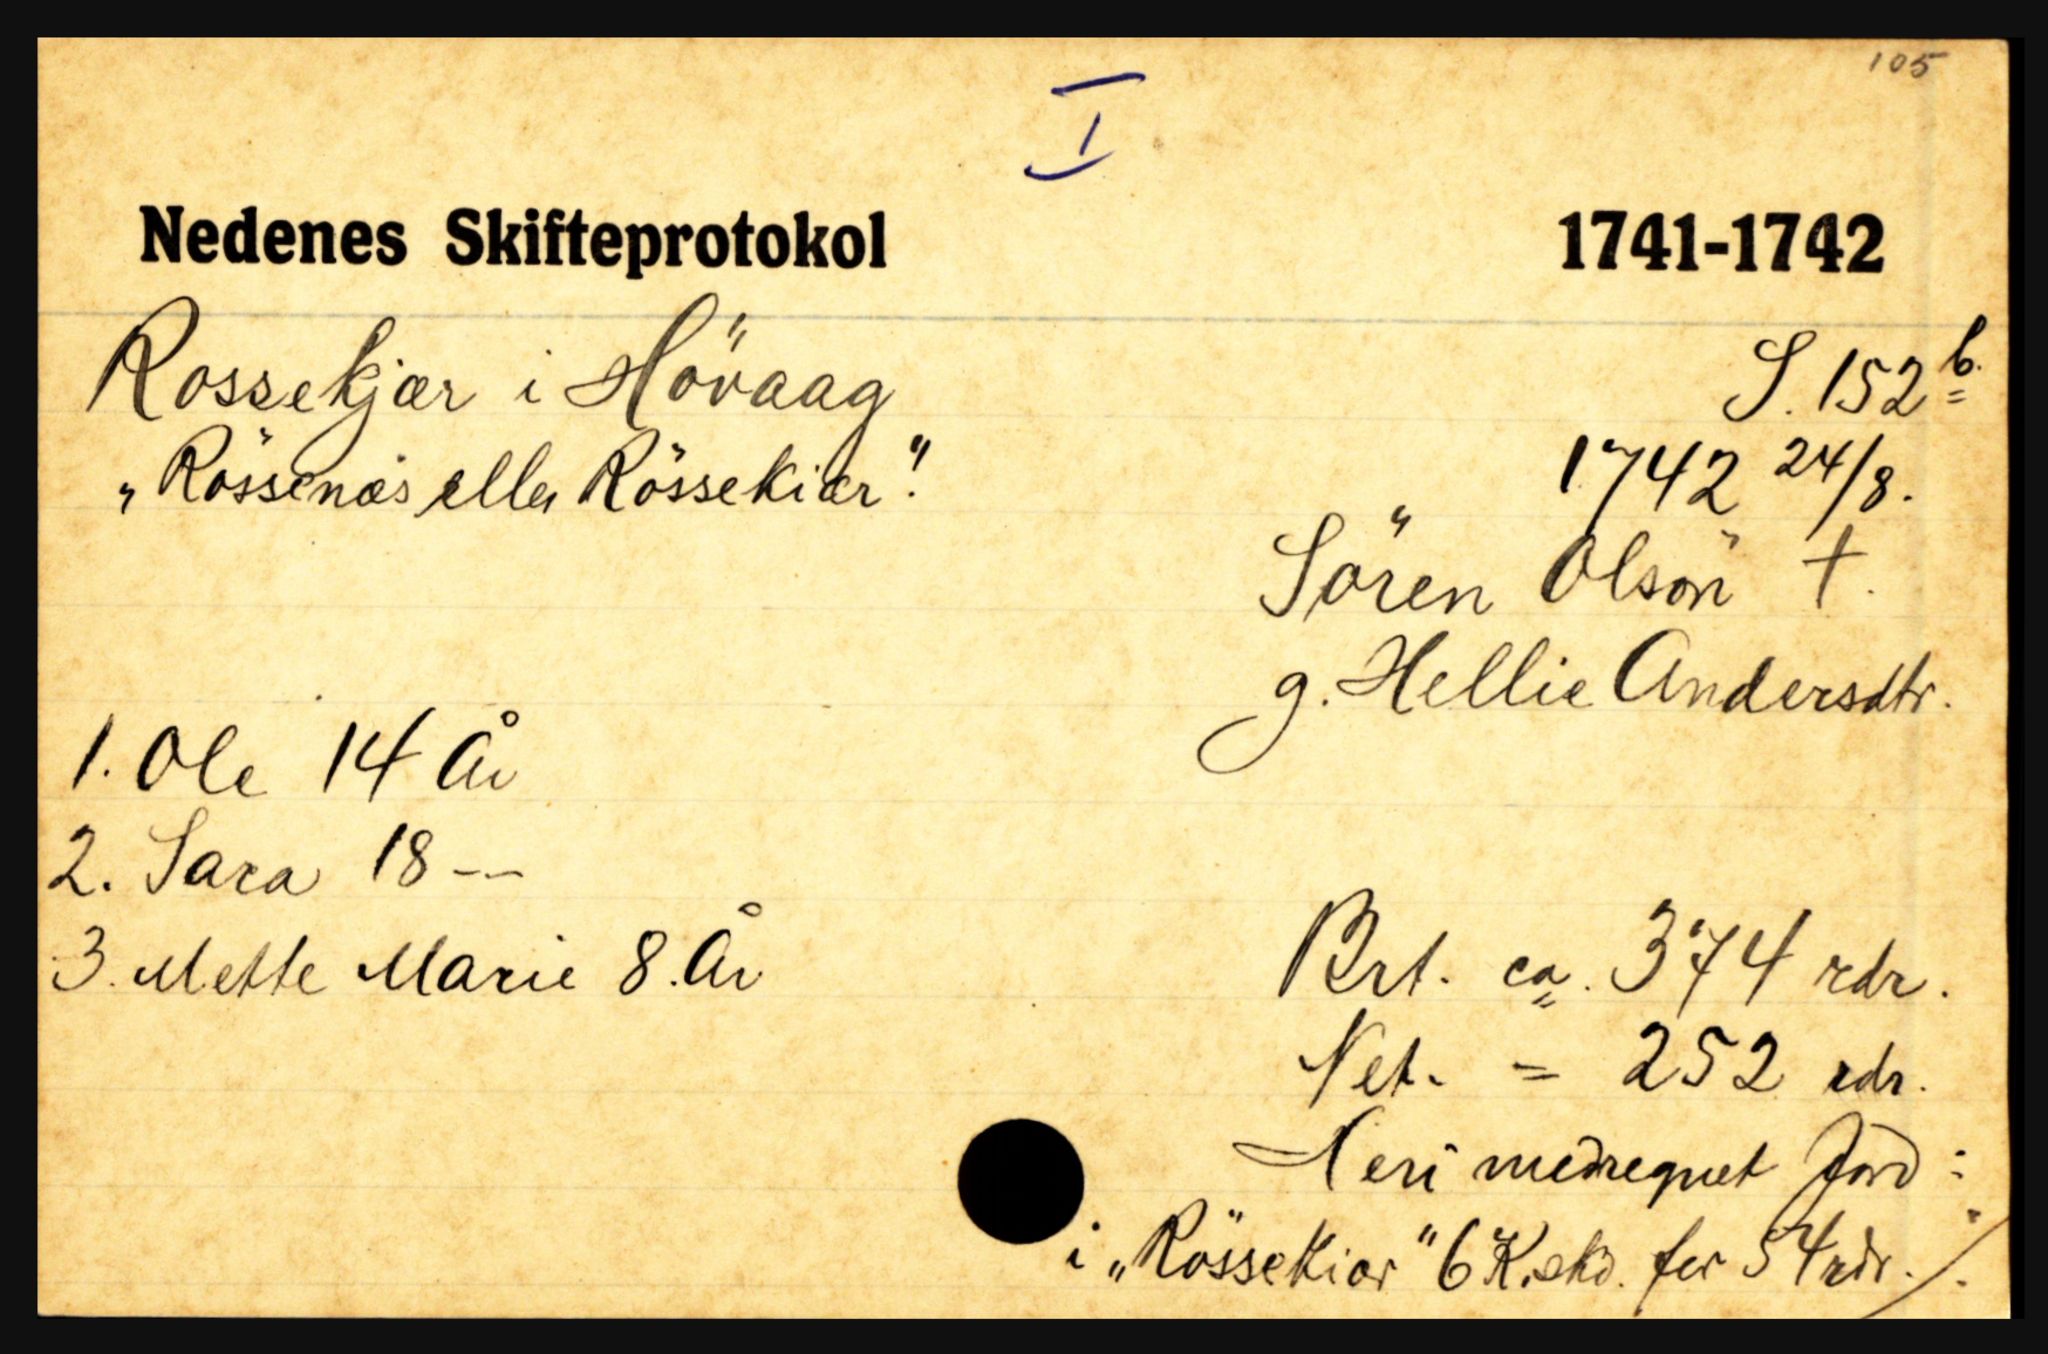 105
I
Nedenes Skifteprotokol 1741-1742
Rossekjær i Hövaag S. 152 b.
„Rössenæs eller Rössekiær". 1742 24/8.
Sören Olsön †.
g. Hellie Andersdtr.
1. Ole 14 År
2. Sara 18 --
3. Mette Marie 8. År
Brt. ca. 374 rdr.
Net. = 252 rdr.
Heri medregnet Jord:
i „Rössekiær" 6 K.skd. for 54 rdr. /.